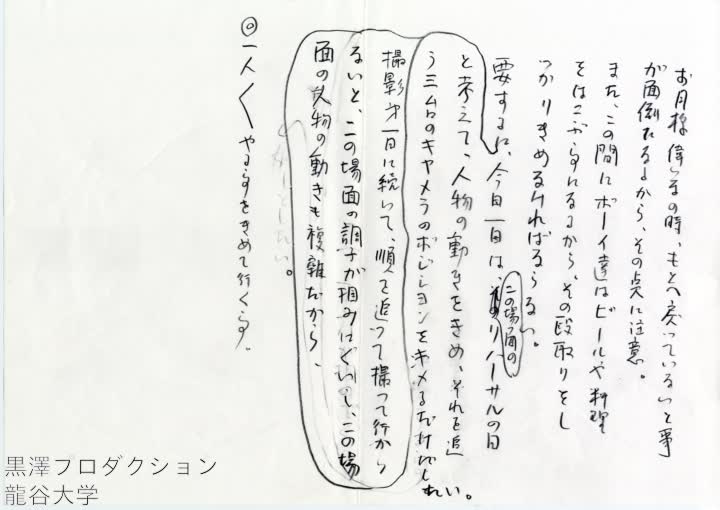 お月様偉いなの時、もとへ戻っていないと事
が面倒だなるから、その点に注意。
また、この間にボーイ達はビールや料理
をはこぶ事になるから、その段取りをし
っかりきめなければならない。
要するに、今日一日は、この場面のリハーサルの日
と考えて、人物の動きをきめ、それを追
う三台のキャメラのポジションをキメるだけだしれい。
撮影才一日に続いて、順を追って撮って行から
ないと、この場面の調子が掴みにくいし、この場
面の人物の動きも複雑だから、
したい。
◎一人〱やる事をきめて行く事。
黒澤プロダクション
龍谷大学